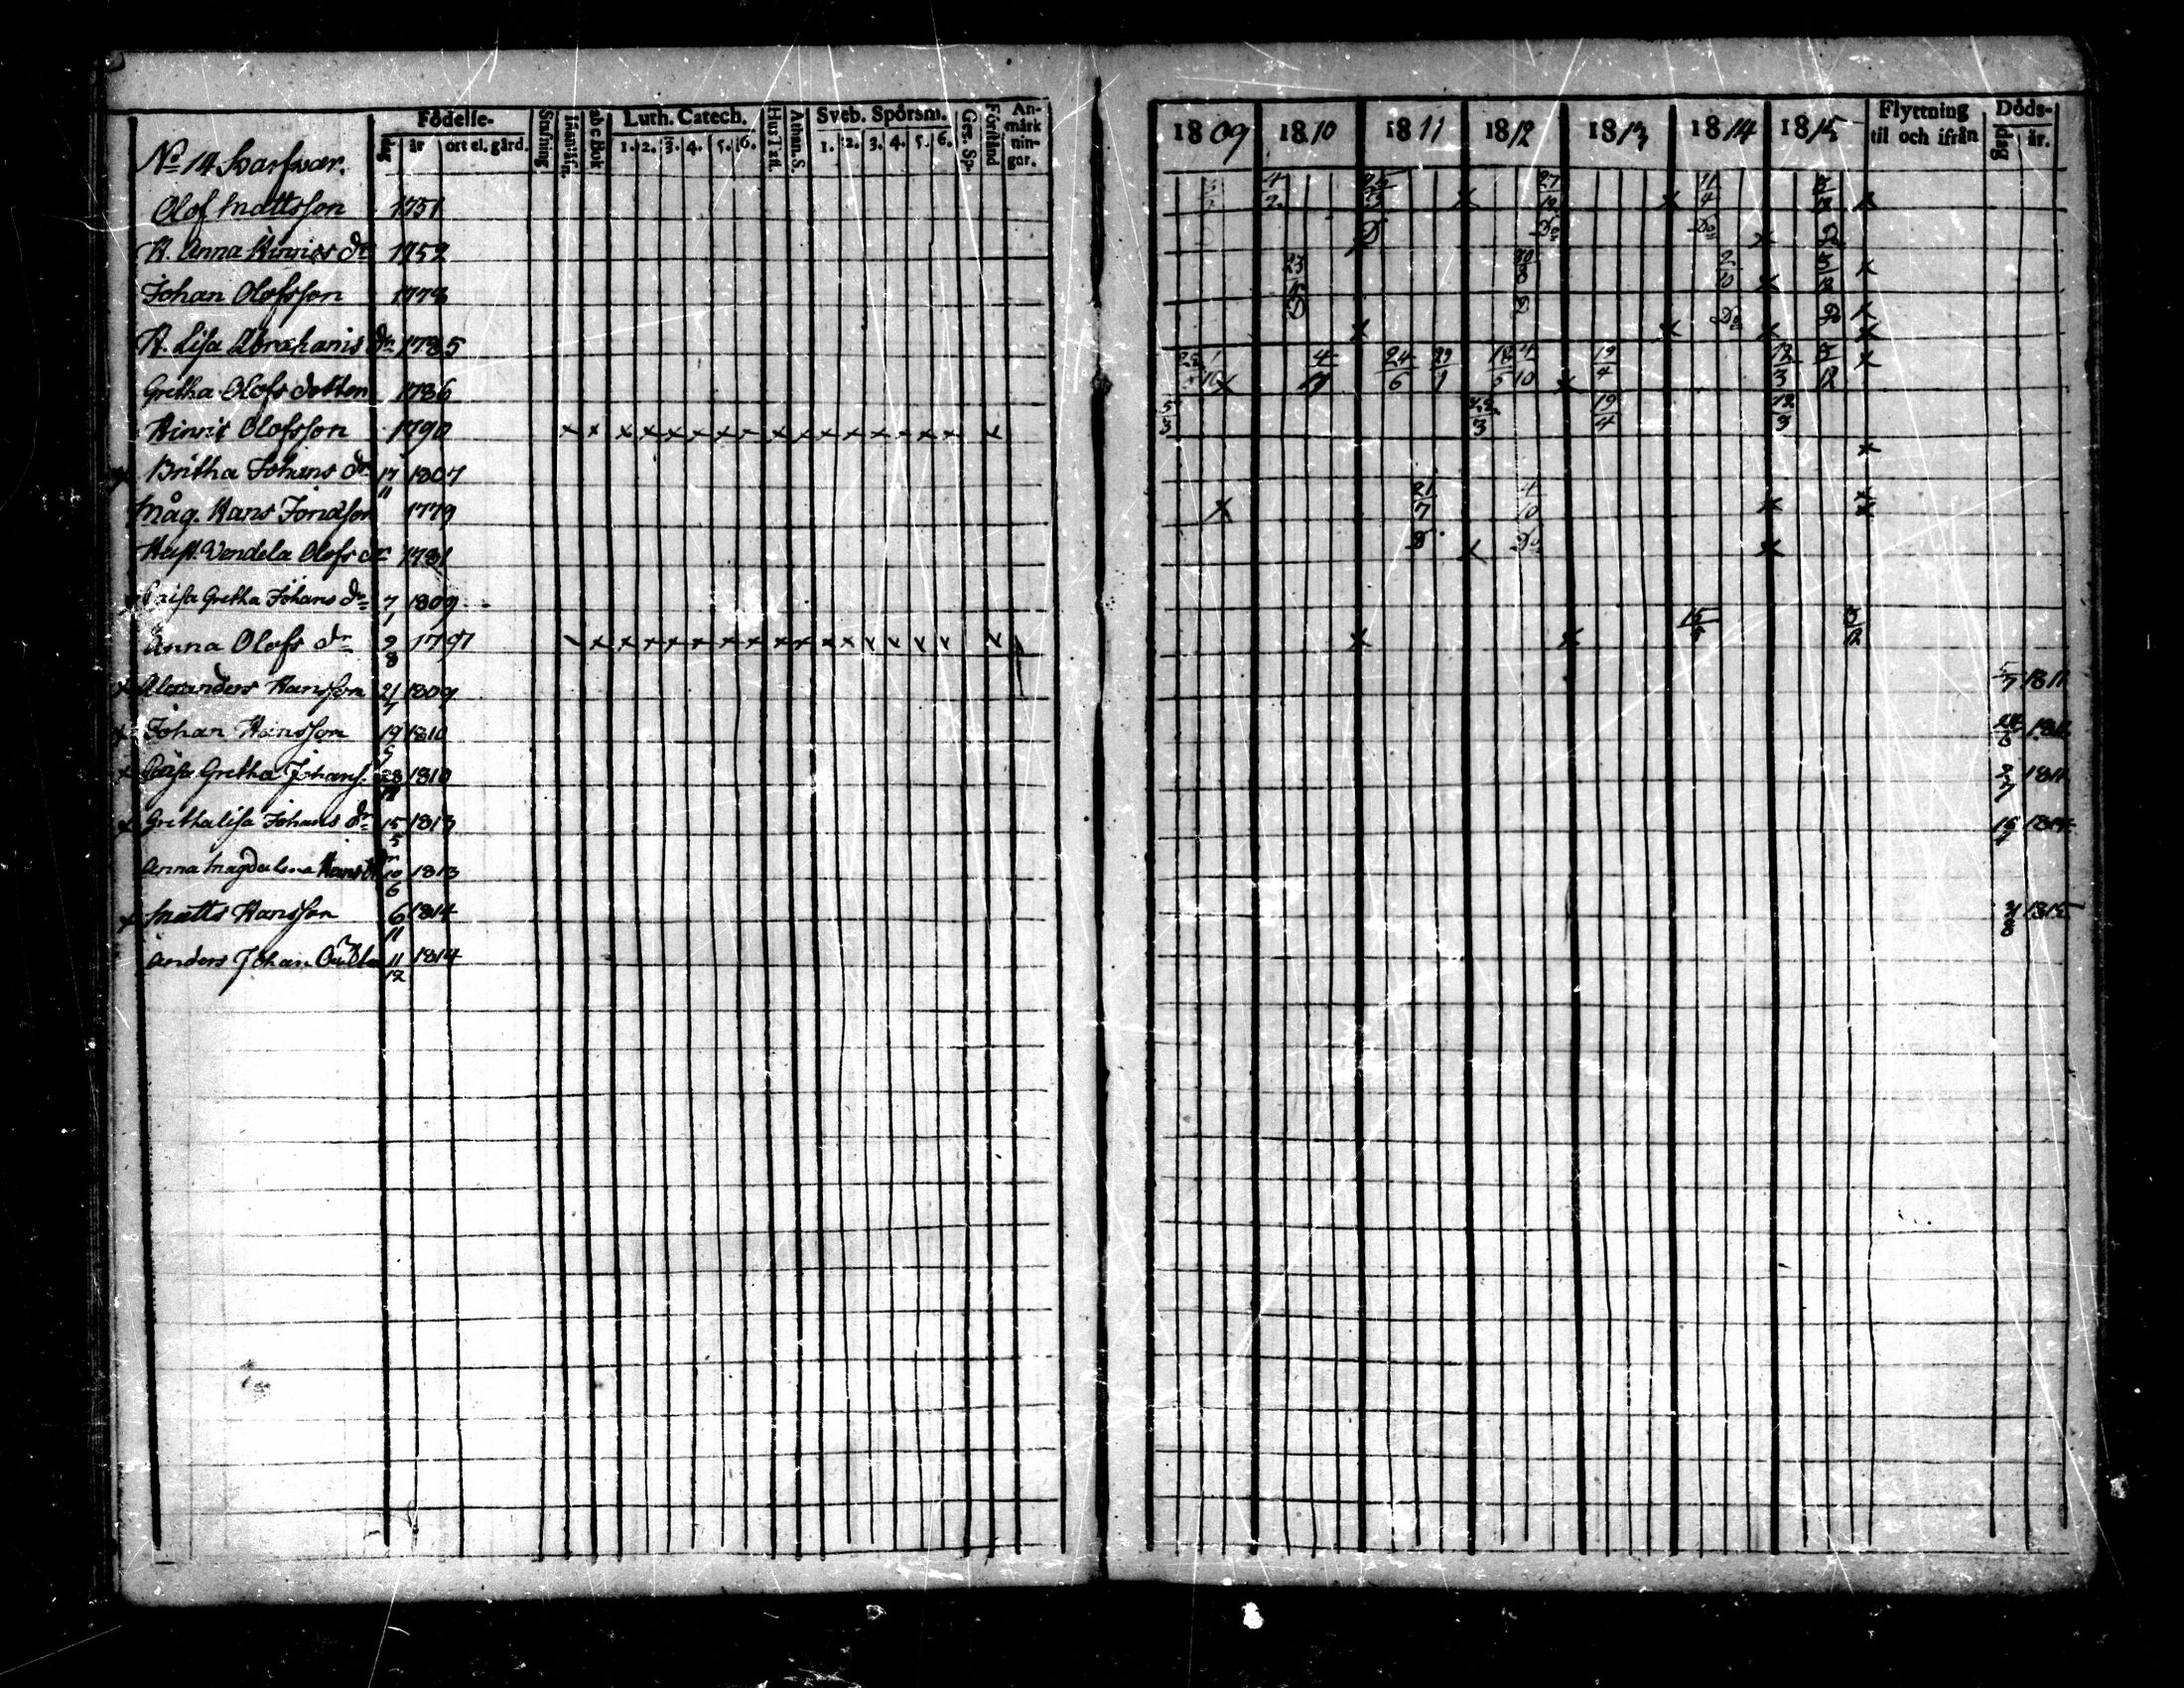 Födelse- Stafning Innanläsn. abc Bok Luth. Catech. Hus Tafl. Athan. S. Sveb. Spörsm. Ger. Sp. Förstånd An-märk-nin-gar.
dag år ort el. gård. 1. 2. 3. 4. 5. 6. 1. 2. 3. 4. 5. 6.
1809 1810 1811 1812 1813 1814 1815 Flyttning til och ifrån Döds- dag år.
No 14 Svarfvar.
Olof Mattsson 1751 4/2 27/12 x 11/4 3/12 x
H. Anna Hinrics dr 1752 D Do Do x D
Johan Olofsson 1778 30/8 2/10 x 3/12 x
H. Lisa Abrahams dr 1785 D x D x Do x D x
Gretha Olofs dotter 1786 x 4 24/6 29/1 4/10 x 19/4 12/3 3/12 x
Hinric Olofsson 1790 x x x x x x x x x x x x x x x x x 5/3 19/4 12/3
x Britha Johans dr 17/11 1807 x
Måg. Hans Jönsson 1779 x 21/7 4/10 x x
Hust. Vendela Olofs dr 1781 D x Do x
Caisa Gretha Johans dr 7/1 1809
Anna Olofs dr 2/8 1797 x x x x x x x x x x x x x x x x x x x 15 3/12
x Alexanders Hansson 21/7 1809 5/7 1811
x Johan Hansson 19/5 1810
x Caisa Gretha Johans. 1810 2/7 1811
x Gretha Lisa Johans dr 15/5 1813 1814
Anna Magdalena Hans dr 10/6 1813
x Matts Hansson 6/11 1814 1815
Anders Johan 11/12 1814